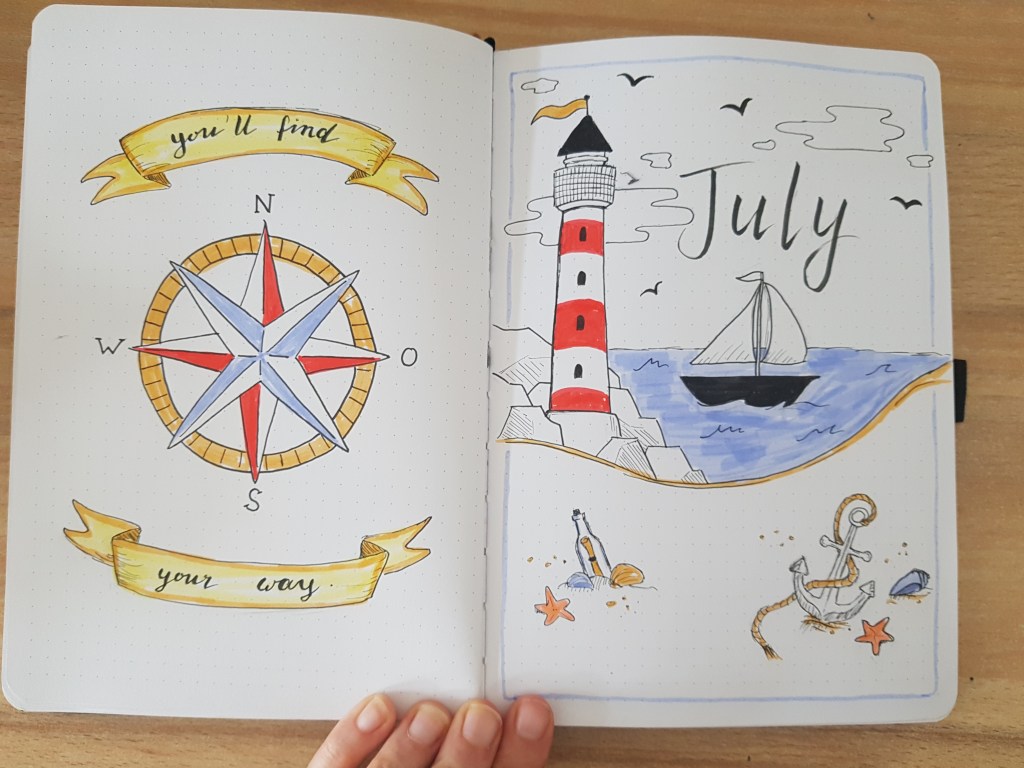 you'll find
N
W
O
S
your way.
July